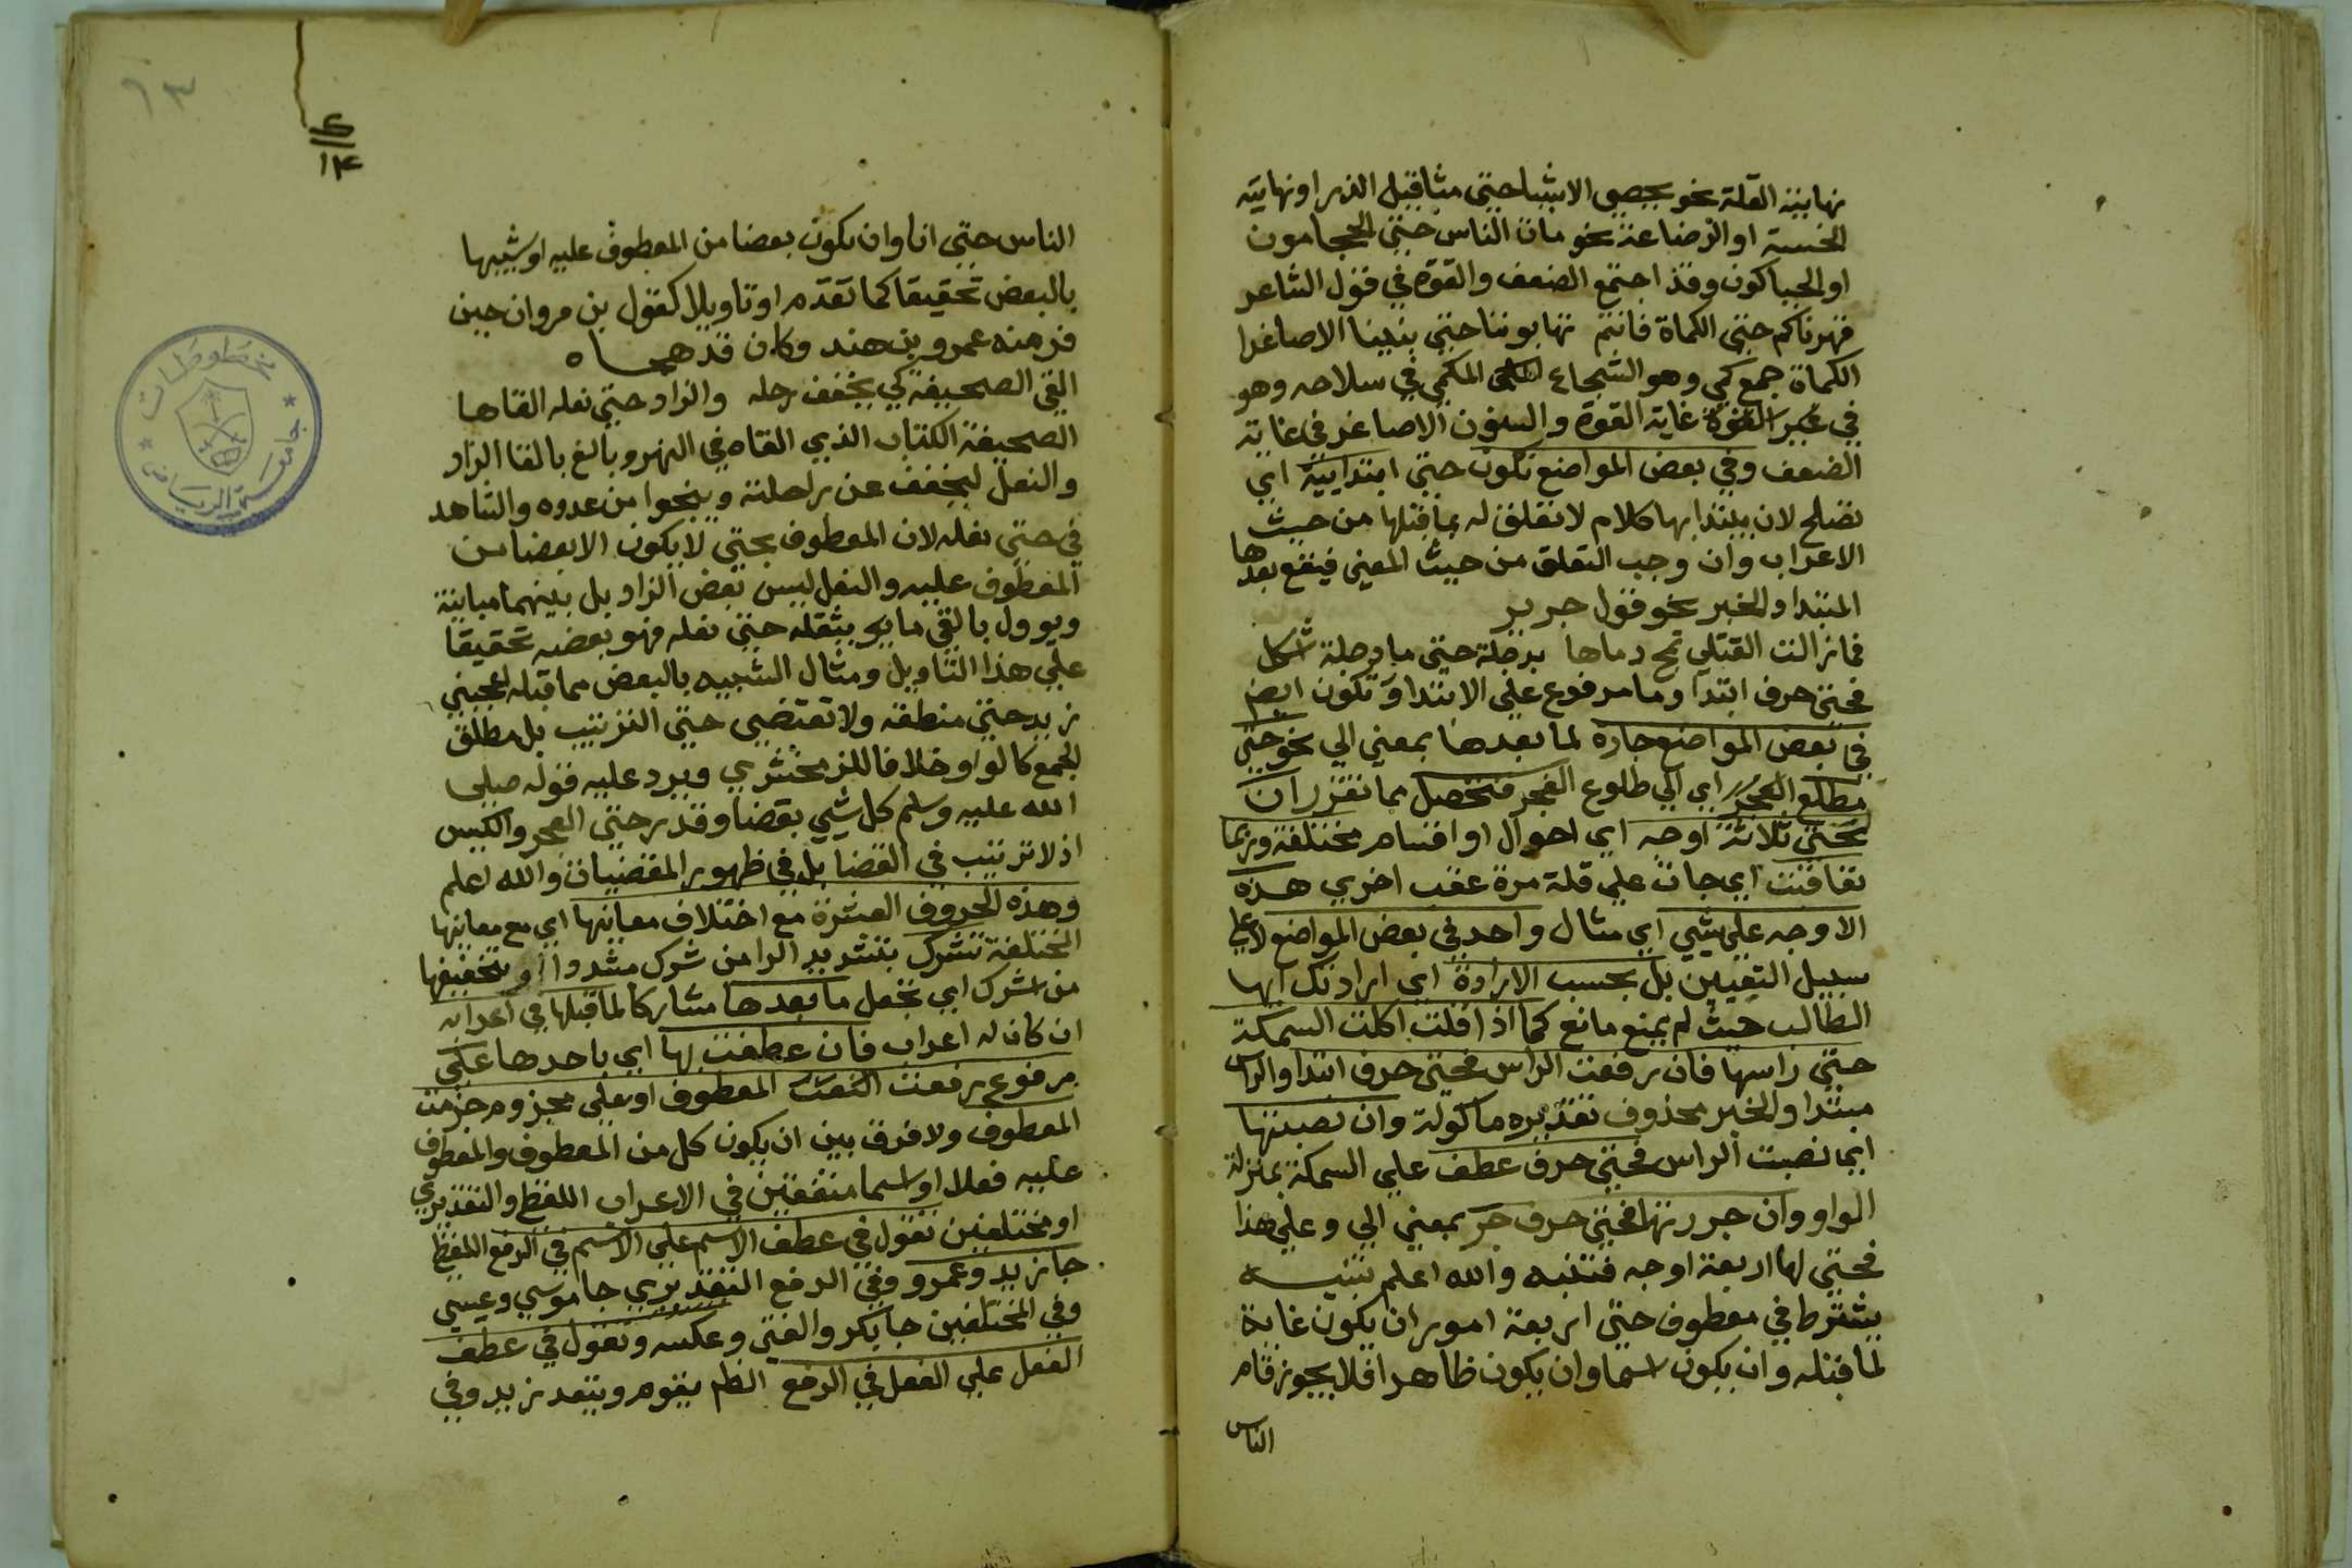 نهاية القلة نحو يحصي الاشيا حتي مثاقيل الذر او نهاية
الخسة او الرضاعة نحو مات الناس حتي الحجامون
او الحياكون وقد اجتمع الضعف والقوة في قول الشاعر
قهرناكم حتي الكماة فانتم تهابوننا حتي بنينا الاصاغرا
الكماة جمع كمي وهو الشجاع المكمي في سلاحه وهو
في غاية القوة والبنون الاصاغر في غاية
الضعف وفي بعض المواضع تكون حتي ابتدايية اي
تصلح لان يبتدا بها كلام لا تعلق له بما قبلها من حيث
الاعراب وان وجب التعلق من حيث المعني فيقع بعدها
المبتدا والخبر نحو قول جرير
فما زالت القتلي تمج دماها بدجلة حتي ما دجلة اشكل
فحتي حرف ابتدا وما مرفوع علي الابتدا وتكون ايض
في بعض المواضع جارة لما بعدها بمعني الي نحو حتي
مطلع الفجر اي الي طلوع الفجر فتحصل مما تقرر ان
لحتي ثلاثة اوجه اي احوال او اقسام مختلفة وربما
تعاقبت اي جات علي قلة مرة عقب اخري هذه
الاوجه علي شيي اي مثال واحد في بعض المواضع لا علي
سبيل التعيين بل بحسب الارادة اي ارادتك ايها
الطالب حيث لم يمنع مانع كما اذا قلت اكلت السمكة
حتي راسها فان رفعت الراس فحتي حرف ابتدا والراس
مبتدا والخبر محذوف تقديره ماكولة وان نصبتها
اي نصبت الراس فحتي حرف عطف علي السمكة بمنزلة
الواو وان جررتها فحتي حرف جر بمعني الي وعلي هذا
فحتي لها اربعة اوجه فتنبه والله اعلم تنبيه
يشترط في معطوف حتي اربعة امور ان يكون غاية
لما قبله وان يكون اسما وان يكون ظاهرا فلا يجوز قام
الناس
٢
١٣
١٣
الناس حتي انا وان يكون بعضا من المعطوف عليه او شبيها
بالبعض تحقيقا كما تقدم او تاويلا كقول بن مروان حين
فر منه عمرو بن هند وكان قد هجاه
القي الصحيفة كي يخفف رحله والزاد حتي نعله القاها
الصحيفة الكتاب الذي القاه في النهر وبالغ بالقا الزاد
والنعل ليخفف عن راحلته وينجوا من عدوه والشاهد
في حتي نعله لان المعطوف بحتي لا يكون الا بعضا من
المعطوف عليه والنعل ليس بعض الزاد بل بينهما مباينة
ويوول بالقي ما يثقله حتي نعله فهو بعضه تحقيقا
علي هذا التاويل ومثال الشبيه بالبعض مما قبله اعجبني
زيد حتي منطقه ولا تقتضي حتي الترتيب بل مطلق
الجمع كالواو خلافا للزمخشري ويرد عليه قوله صلي
الله عليه وسلم كل شيي بقضا وقدر حتي العجز والكيس
اذ لا ترتيب في القضا بل في ظهور المقضيات والله اعلم
وهذه الحروف العشرة مع اختلاف معانيها اي مع معانيها
المختلفة تشرك بتشديد الرا من شرك مشددا او بتخفيفها
من اشرك اي تجعل ما بعدها مشاركا لما قبلها في اعرابه
ان كان له اعراب فان عطفت بها اي باحدها علي
مرفوع رفعت المعطوف او علي مجزوم جزمت
المعطوف ولا فرق بين ان يكون كل من المعطوف والمعطوف
عليه فعلا او اسما متفقين في الاعراب اللفظي والتقديري
او مختلفين تقول في عطف الاسم علي الاسم في الرفع اللفظي
جا زيد وعمرو وفي الرفع التقديري جا موسي وعيسي
وفي المختلفين جا بكر والفتي وعكسه وتقول في عطف
الفعل علي الفعل في الرفع يقوم ويقعد زيد وفي
مخطوطات
جامعة الرياض